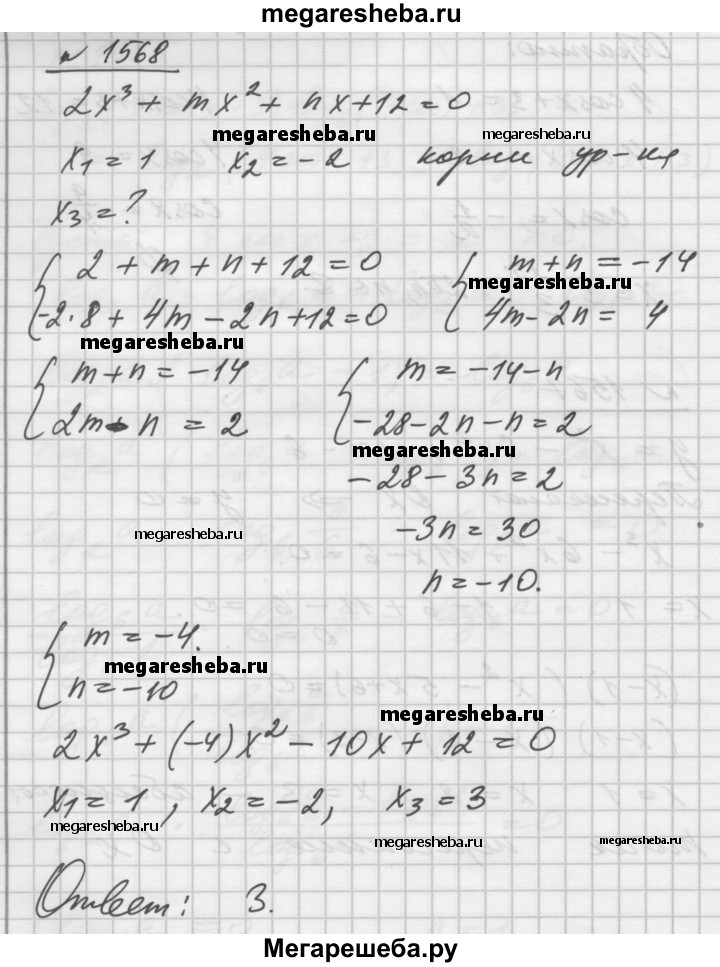 megaresheba.ru
№ 1568
2x³ + mx² + nx + 12 = 0
megaresheba.ru megaresheba.ru
x₁ = 1 x₂ = -2 корни ур-ия
x₃ = ?
{ 2 + m + n + 12 = 0 { m + n = -14
megaresheba.ru
-2·8 + 4m - 2n + 12 = 0 4m - 2n = 4
megaresheba.ru
{ m + n = -14 { m = -14 - n
2m - n = 2 -28 - 2n - n = 2
megaresheba.ru
-28 - 3n = 2
megaresheba.ru -3n = 30
n = -10.
{ m = -4.
megaresheba.ru
n = -10
megaresheba.ru
2x³ + (-4)x² - 10x + 12 = 0
x₁ = 1, x₂ = -2, x₃ = 3
megaresheba.ru megaresheba.ru megaresheba.ru
Ответ: 3.
Мегарешеба.ру